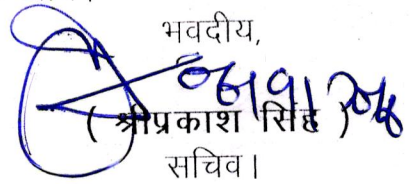 भवदीय,
( श्रीप्रकाश सिंह )
सचिव।